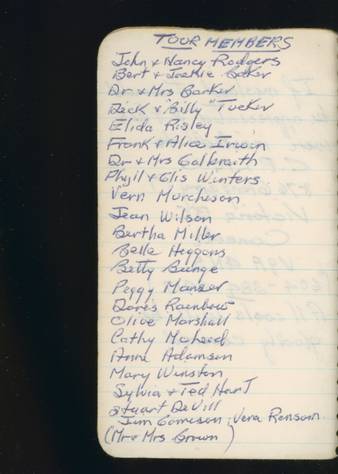 TOUR MEMBERS
John & Nancy Rodgers
Bert & Jackie Baker
Dr & Mrs Barker
Dick & "Billy" Tucker
Elida Risley
Frank & Alice Irwin
Dr & Mrs Galbraith
Phyll & Elis Winters
Vern Murcheson
Jean Wilson
Bertha Miller
Belle Heggons
Betty Bunge
Peggy Manser
Doris Rainbow
Olive Marshall
Cathy McLeod
Anne Adamson
Mary Winston
Sylvia & Ted Hart
Stuart DeVill
Jim Comeson, Vera Ransom
(Mr & Mrs Brown)